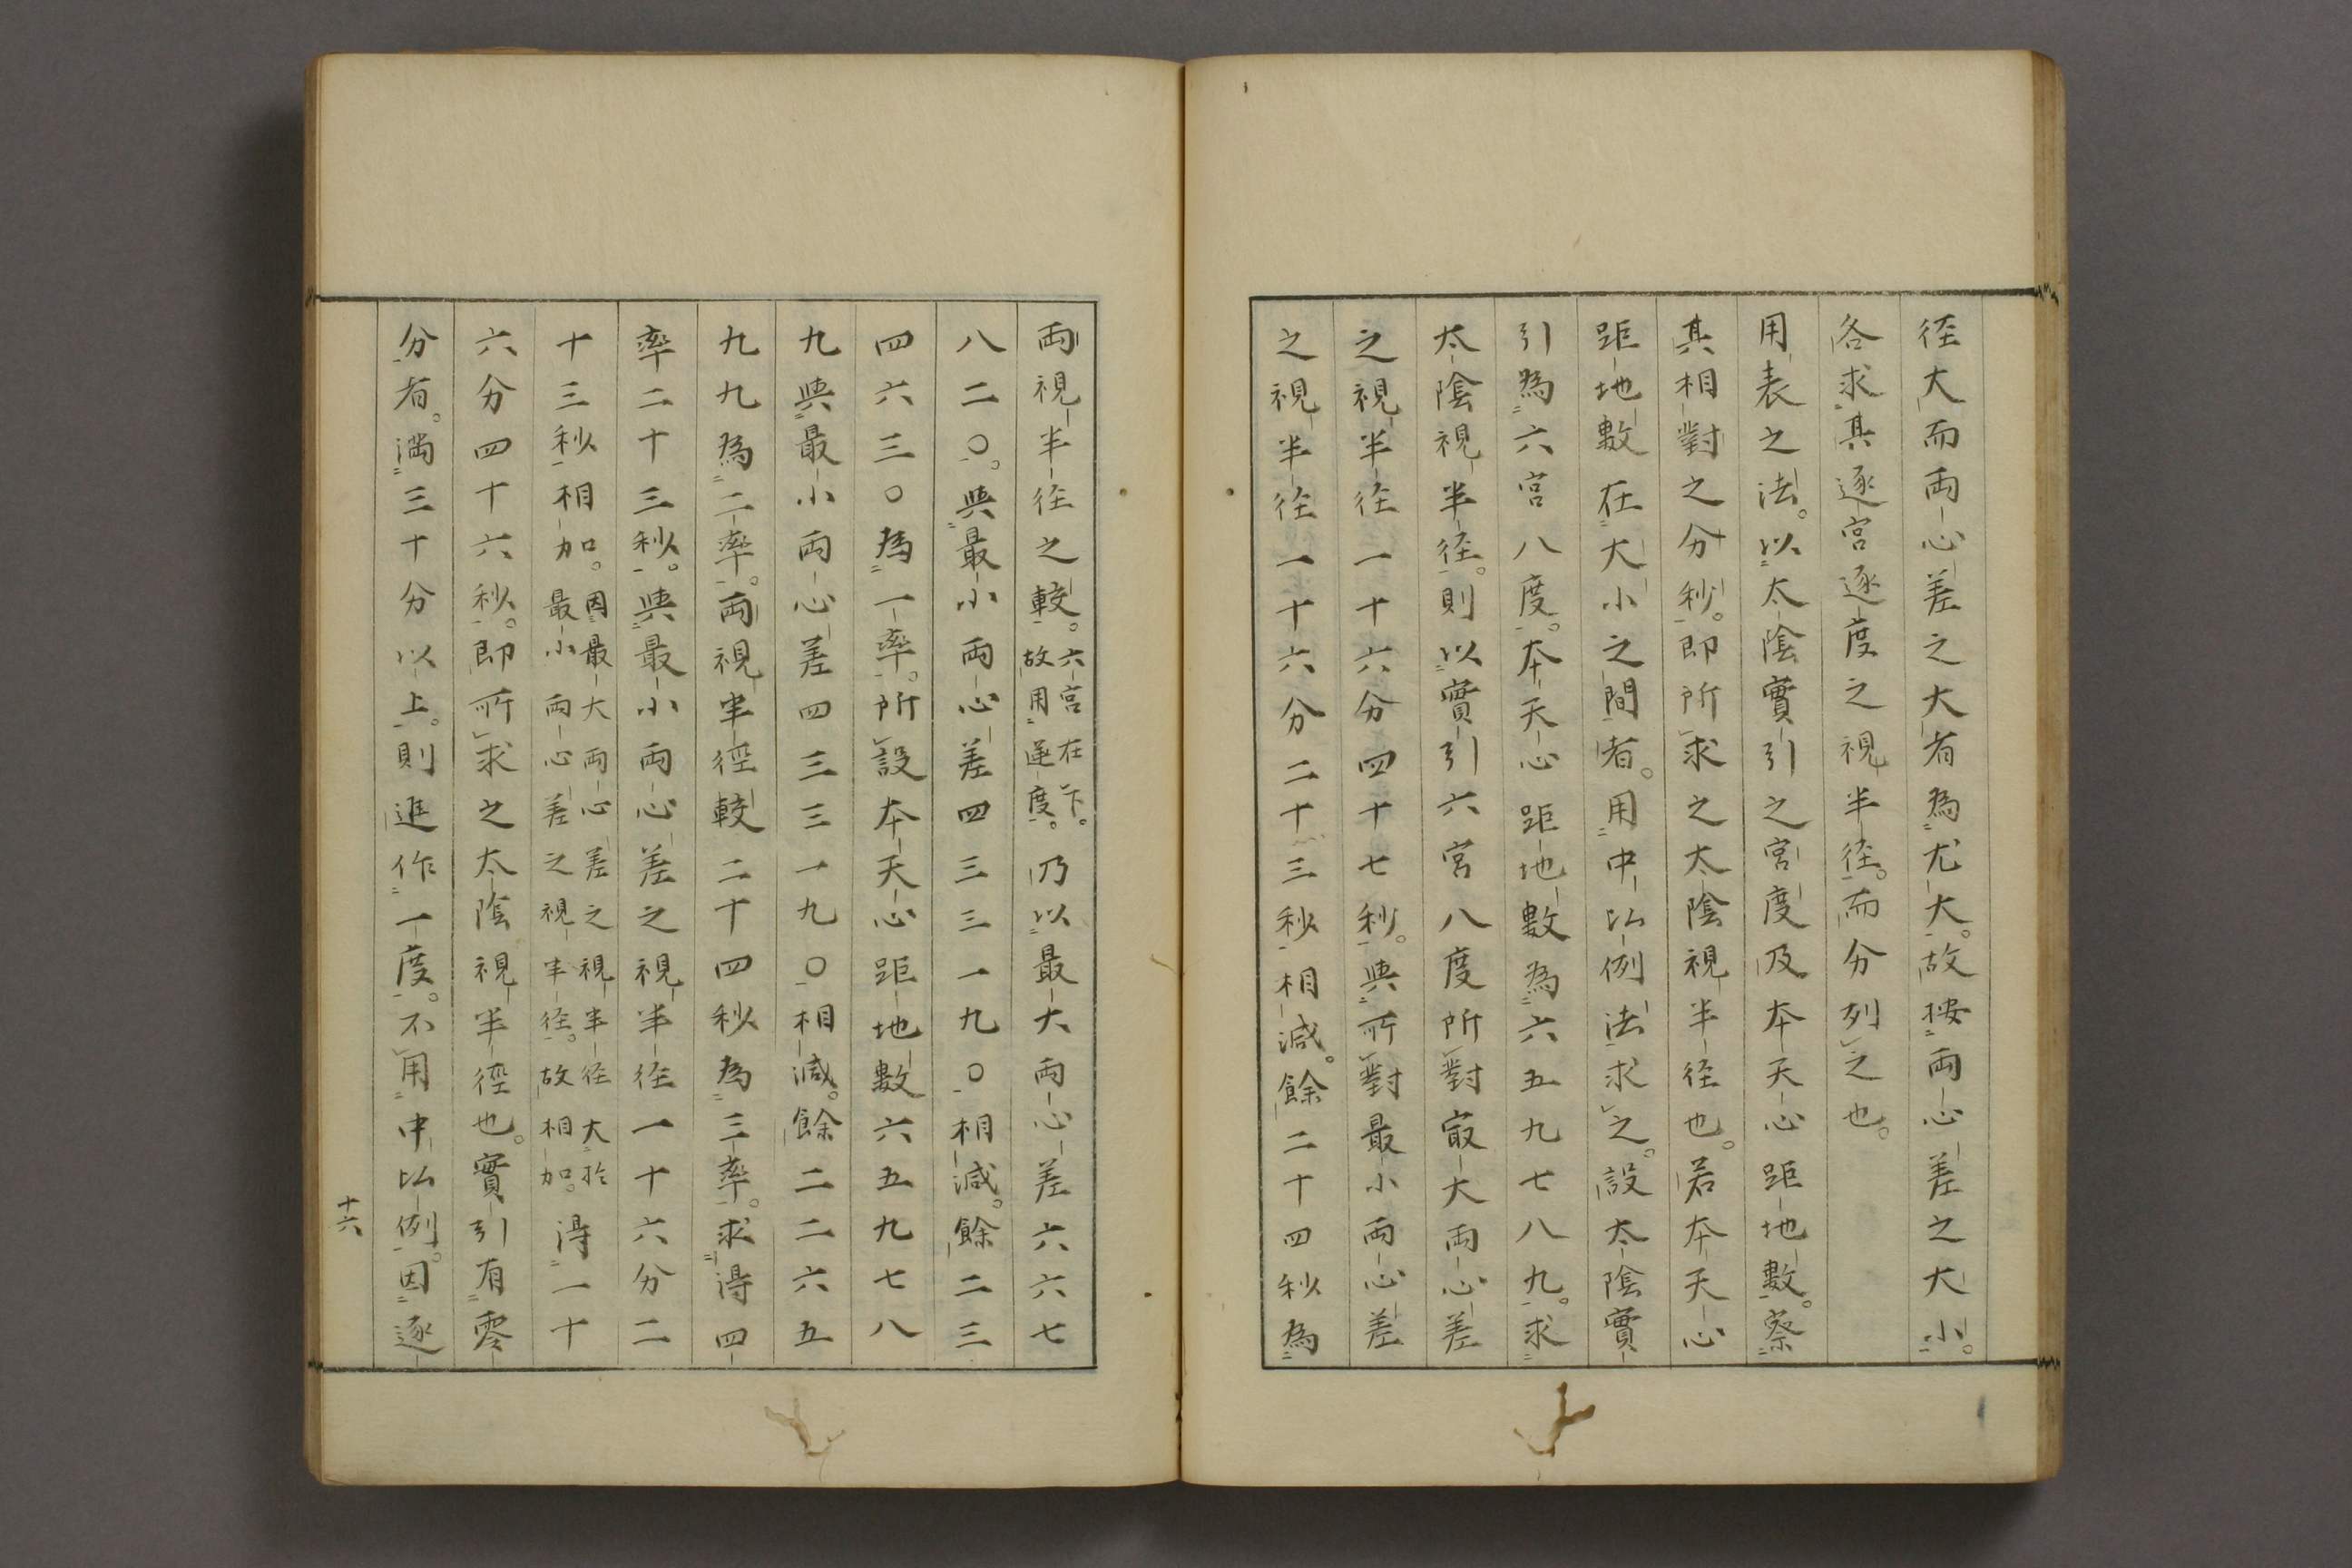 径大而両心差之大者為尤大。故按両心差之大小。
各求其逐宮逐度之視半径。而分列之也。
用表之法。以太陰實引之宮度及本天心距地數。察
其相對之分秒。即所求之太陰視半径也。若本天心
距地數在大小之間者。用中比例法求之。設太陰實
引為六宮八度。本天心距地數為六五九七八九。求
太陰視半径。則以實引六宮八度所對㝡大両心差
之視半径一十六分四十七秒。與所對最小両心差
之視半径一十六分二十三秒相減。餘二十四秒為
両視半径之較。六宮在下。故用逆度。乃以最大両心差六六七
八二〇。與最小両心差四三三一九〇相減。餘二三
四六三〇為一率。所設本天心距地數六五九七八
九與最小両心差四三三一九〇相減。餘二二六五
九九為二率。両視半徑較二十四秒為三率。求得四
率二十三秒。與最小両心差之視半径一十六分二
十三秒相加。因最大両心差之視半径大於最小両心差之視半径。故相加。得一十
六分四十六秒。即所求之太陰視半徑也。實引有零
分者。満三十分以上。則進作一度。不用中比例。因逐
十六